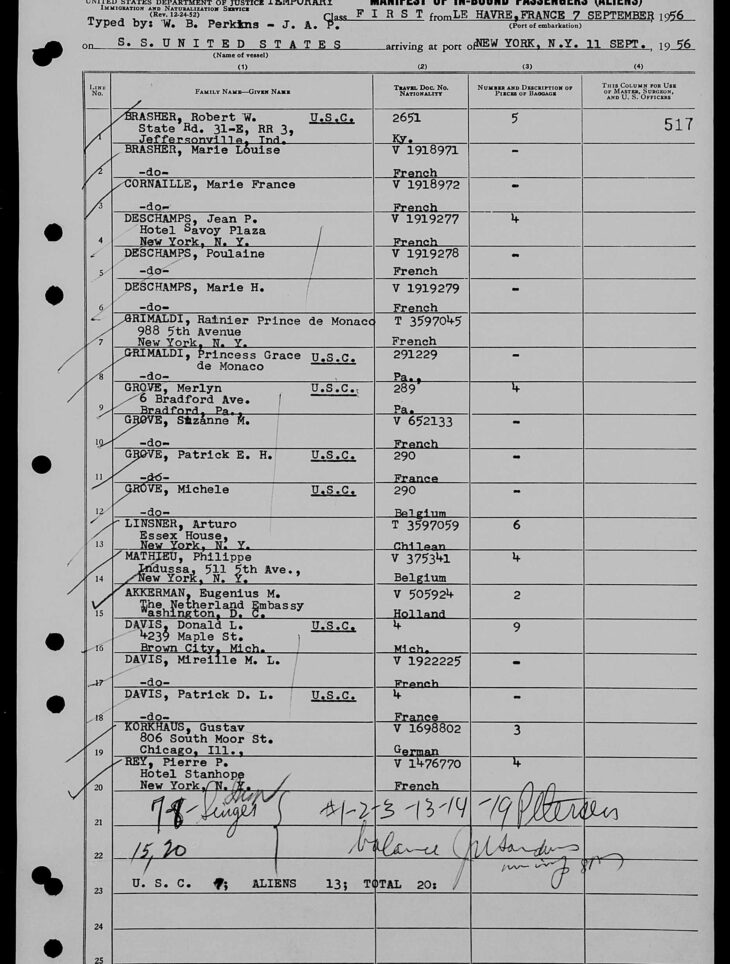 UNITED STATES DEPARTMENT OF JUSTICE TEMPORARY MANIFEST OF IN-BOUND PASSENGERS (ALIENS)
IMMIGRATION AND NATURALIZATION SERVICE
(Rev. 12-24-52)
Typed by: W. B. Perkins - J. A. P. Class F I R S T from LE HAVRE, FRANCE 7 SEPTEMBER 1956
(Port of embarkation)
on S. S. U N I T E D S T A T E S arriving at port of NEW YORK, N.Y. 11 SEPT., 1956
(Name of vessel)
(1) (2) (3) (4)
LINE No. FAMILY NAME—GIVEN NAME TRAVEL DOC. NO. NATIONALITY NUMBER AND DESCRIPTION OF PIECES OF BAGGAGE THIS COLUMN FOR USE OF MASTER, SURGEON, AND U. S. OFFICERS
BRASHER, Robert W. U.S.C. 2651 5 517
State Rd. 31-E, RR 3,
1 Jeffersonville, Ind. Ky.
BRASHER, Marie Louise V 1918971 -
2 -do- French
CORNAILLE, Marie France V 1918972 -
3 -do- French
DESCHAMPS, Jean P. V 1919277 4
Hotel Savoy Plaza
4 New York, N. Y. French
DESCHAMPS, Poulaine V 1919278 -
5 -do- French
DESCHAMPS, Marie H. V 1919279 -
6 -do- French
GRIMALDI, Rainier Prince de Monaco T 3597045
988 5th Avenue
7 New York, N. Y. French
GRIMALDI, Princess Grace U.S.C. 291229 -
de Monaco
8 -do- Pa.,
GROVE, Merlyn U.S.C. 289 4
6 Bradford Ave.
9 Bradford, Pa., Pa.
GROVE, Suzanne M. V 652133 -
10 -do- French
GROVE, Patrick E. H. U.S.C. 290 -
11 -do- France
GROVE, Michele U.S.C. 290 -
12 -do- Belgium
LINSNER, Arturo T 3597059 6
Essex House,
13 New York, N. Y. Chilean
MATHIEU, Philippe V 375341 4
Indussa, 511 5th Ave.,
14 New York, N. Y. Belgium
AKKERMAN, Eugenius M. V 505924 2
The Netherland Embassy
15 Washington, D. C. Holland
DAVIS, Donald L. U.S.C. 4 9
4239 Maple St.
16 Brown City, Mich. Mich.
DAVIS, Mireille M. L. V 1922225 -
17 -do- French
DAVIS, Patrick D. L. U.S.C. 4 -
18 -do- France
KORKHAUS, Gustav V 1698802 3
806 South Moor St.
19 Chicago, Ill., German
REY, Pierre P. V 1476770 4
Hotel Stanhope
20 New York, N. Y. French
7-8- Singer #1-2-3 -13-14 -19 Petersen
21
15, 20 balance
22
23 U. S. C. 7; ALIENS 13; TOTAL 20:
24
25